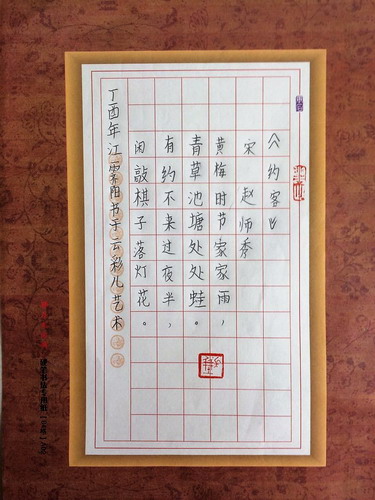 《约客》
宋 赵师秀
黄梅时节家家雨，
青草池塘处处蛙。
有约不来过夜半，
闲敲棋子落灯花。
丁酉年江雲阳书于云彩儿艺术